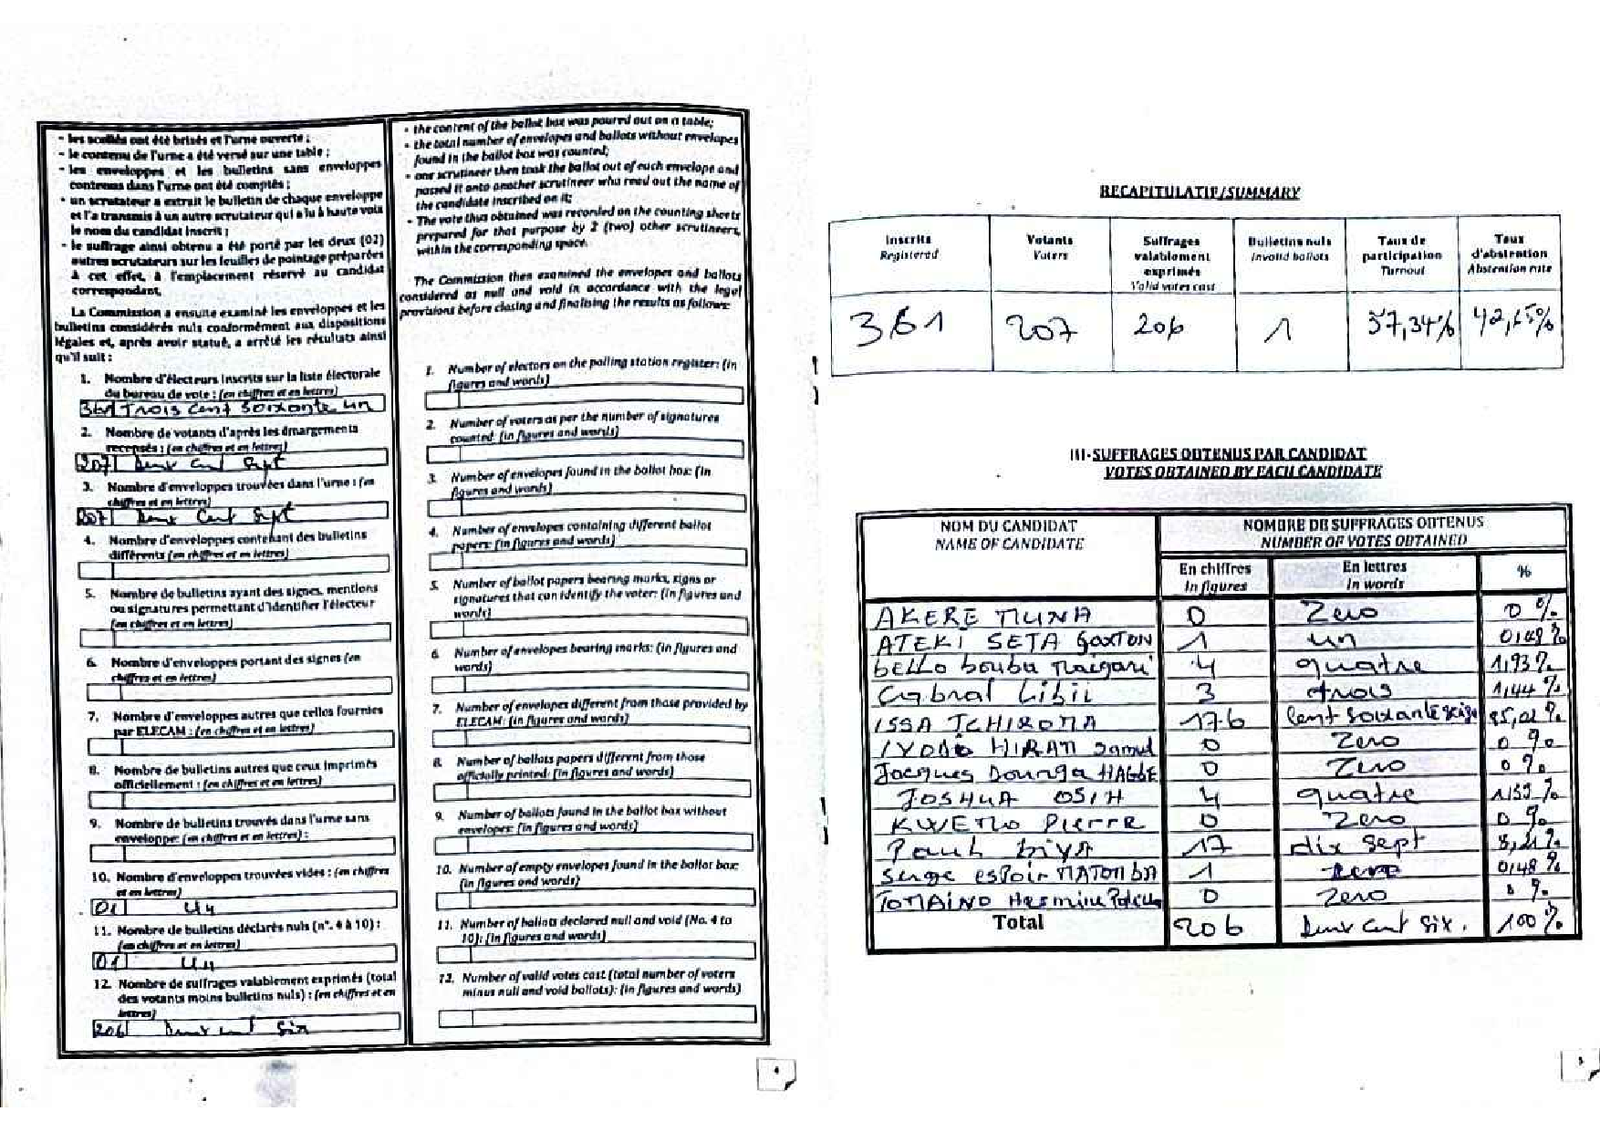 - les scellés ont été brisés et l'urne ouverte ;
- le contenu de l'urne a été versé sur une table ;
- les enveloppes et les bulletins sans enveloppes
contenus dans l'urne ont été comptés ;
- un scrutateur a extrait le bulletin de chaque enveloppe
et l'a transmis à un autre scrutateur qui a lu à haute voix
le nom du candidat inscrit ;
- le suffrage ainsi obtenu a été porté par les deux (02)
autres scrutateurs sur les feuilles de pointage préparées
à cet effet, à l'emplacement réservé au candidat
correspondant.
La Commission a ensuite examiné les enveloppes et les
bulletins considérés nuls conformément aux dispositions
légales et, après avoir statué, a arrêté les résultats ainsi
qu'il suit :
1. Nombre d'électeurs inscrits sur la liste électorale
du bureau de vote : (en chiffres et en lettres)
361 Trois Cent Soixante un
2. Nombre de votants d'après les émargements
recensés : (en chiffres et en lettres)
207 Deux Cent Sept
3. Nombre d'enveloppes trouvées dans l'urne : (en
chiffres et en lettres)
207 Deux Cent Sept
4. Nombre d'enveloppes contenant des bulletins
différents (en chiffres et en lettres)
5. Nombre de bulletins ayant des signes, mentions
ou signatures permettant d'identifier l'électeur
(en chiffres et en lettres)
6. Nombre d'enveloppes portant des signes (en
chiffres et en lettres)
7. Nombre d'enveloppes autres que celles fournies
par ELECAM : (en chiffres et en lettres)
8. Nombre de bulletins autres que ceux imprimés
officiellement : (en chiffres et en lettres)
9. Nombre de bulletins trouvés dans l'urne sans
enveloppe: (en chiffres et en lettres) :
10. Nombre d'enveloppes trouvées vides : (en chiffres
et en lettres)
01 Un
11. Nombre de bulletins déclarés nuls (n°. 4 à 10) :
(en chiffres et en lettres)
01 Un
12. Nombre de suffrages valablement exprimés (total
des votants moins bulletins nuls) : (en chiffres et en
lettres)
206 Deux cent Six
- the content of the ballot box was poured out on a table;
- the total number of envelopes and ballots without envelopes
found in the ballot box was counted;
- one scrutineer then took the ballot out of each envelope and
passed it onto another scrutineer who read out the name of
the candidate inscribed on it;
- The vote thus obtained was recorded on the counting sheets
prepared for that purpose by 2 (two) other scrutineers,
within the corresponding space.
The Commission then examined the envelopes and ballots
considered as null and void in accordance with the legal
provisions before closing and finalising the results as follows:
1. Number of electors on the polling station register: (in
figures and words)
2. Number of voters as per the number of signatures
counted: (in figures and words)
3. Number of envelopes found in the ballot box: (in
figures and words)
4. Number of envelopes containing different ballot
papers: (in figures and words)
5. Number of ballot papers bearing marks, signs or
signatures that can identify the voter: (in figures and
words)
6. Number of envelopes bearing marks: (in figures and
words)
7. Number of envelopes different from those provided by
ELECAM: (in figures and words)
8. Number of ballots papers different from those
officially printed: (in figures and words)
9. Number of ballots found in the ballot box without
envelopes: (in figures and words)
10. Number of empty envelopes found in the ballot box:
(in figures and words)
11. Number of ballots declared null and void (No. 4 to
10): (in figures and words)
12. Number of valid votes cast (total number of voters
minus null and void ballots): (in figures and words)
4
RECAPITULATIF/SUMMARY
Inscrits Registered
Votants Voters
Suffrages valablement exprimés Valid votes cast
Bulletins nuls Invalid ballots
Taux de participation Turnout
Taux d'abstention Abstention rate
361 207 206 1 57,34% 42,65%
III-SUFFRAGES OBTENUS PAR CANDIDAT
VOTES OBTAINED BY EACH CANDIDATE
NOM DU CANDIDAT
NAME OF CANDIDATE
NOMBRE DE SUFFRAGES OBTENUS
NUMBER OF VOTES OBTAINED
En chiffres In figures
En lettres In words
%
AKERE MUNA 0 Zero 0 %
ATEKI SETA Gaxton 1 un 0,48 %
bello bouba maigari 4 quatre 1,93 %
Cabral Libii 3 trois 1,44 %
ISSA TCHIROMA 176 Cent soixante seize 85,02 %
IYODI HIRAM Samuel 0 Zero 0 %
Jacques Bounga HAGBE 0 Zero 0 %
JOSHUA OSIH 4 quatre 1,93 %
KWEMO Pierre 0 Zero 0 %
Paul biya 17 dix sept 8,21 %
Serge espoir MATOMBA 1 0,48 %
TOMAINO Hermine 0 Zero 0 %
Total 206 Deux cent Six. 100 %
5